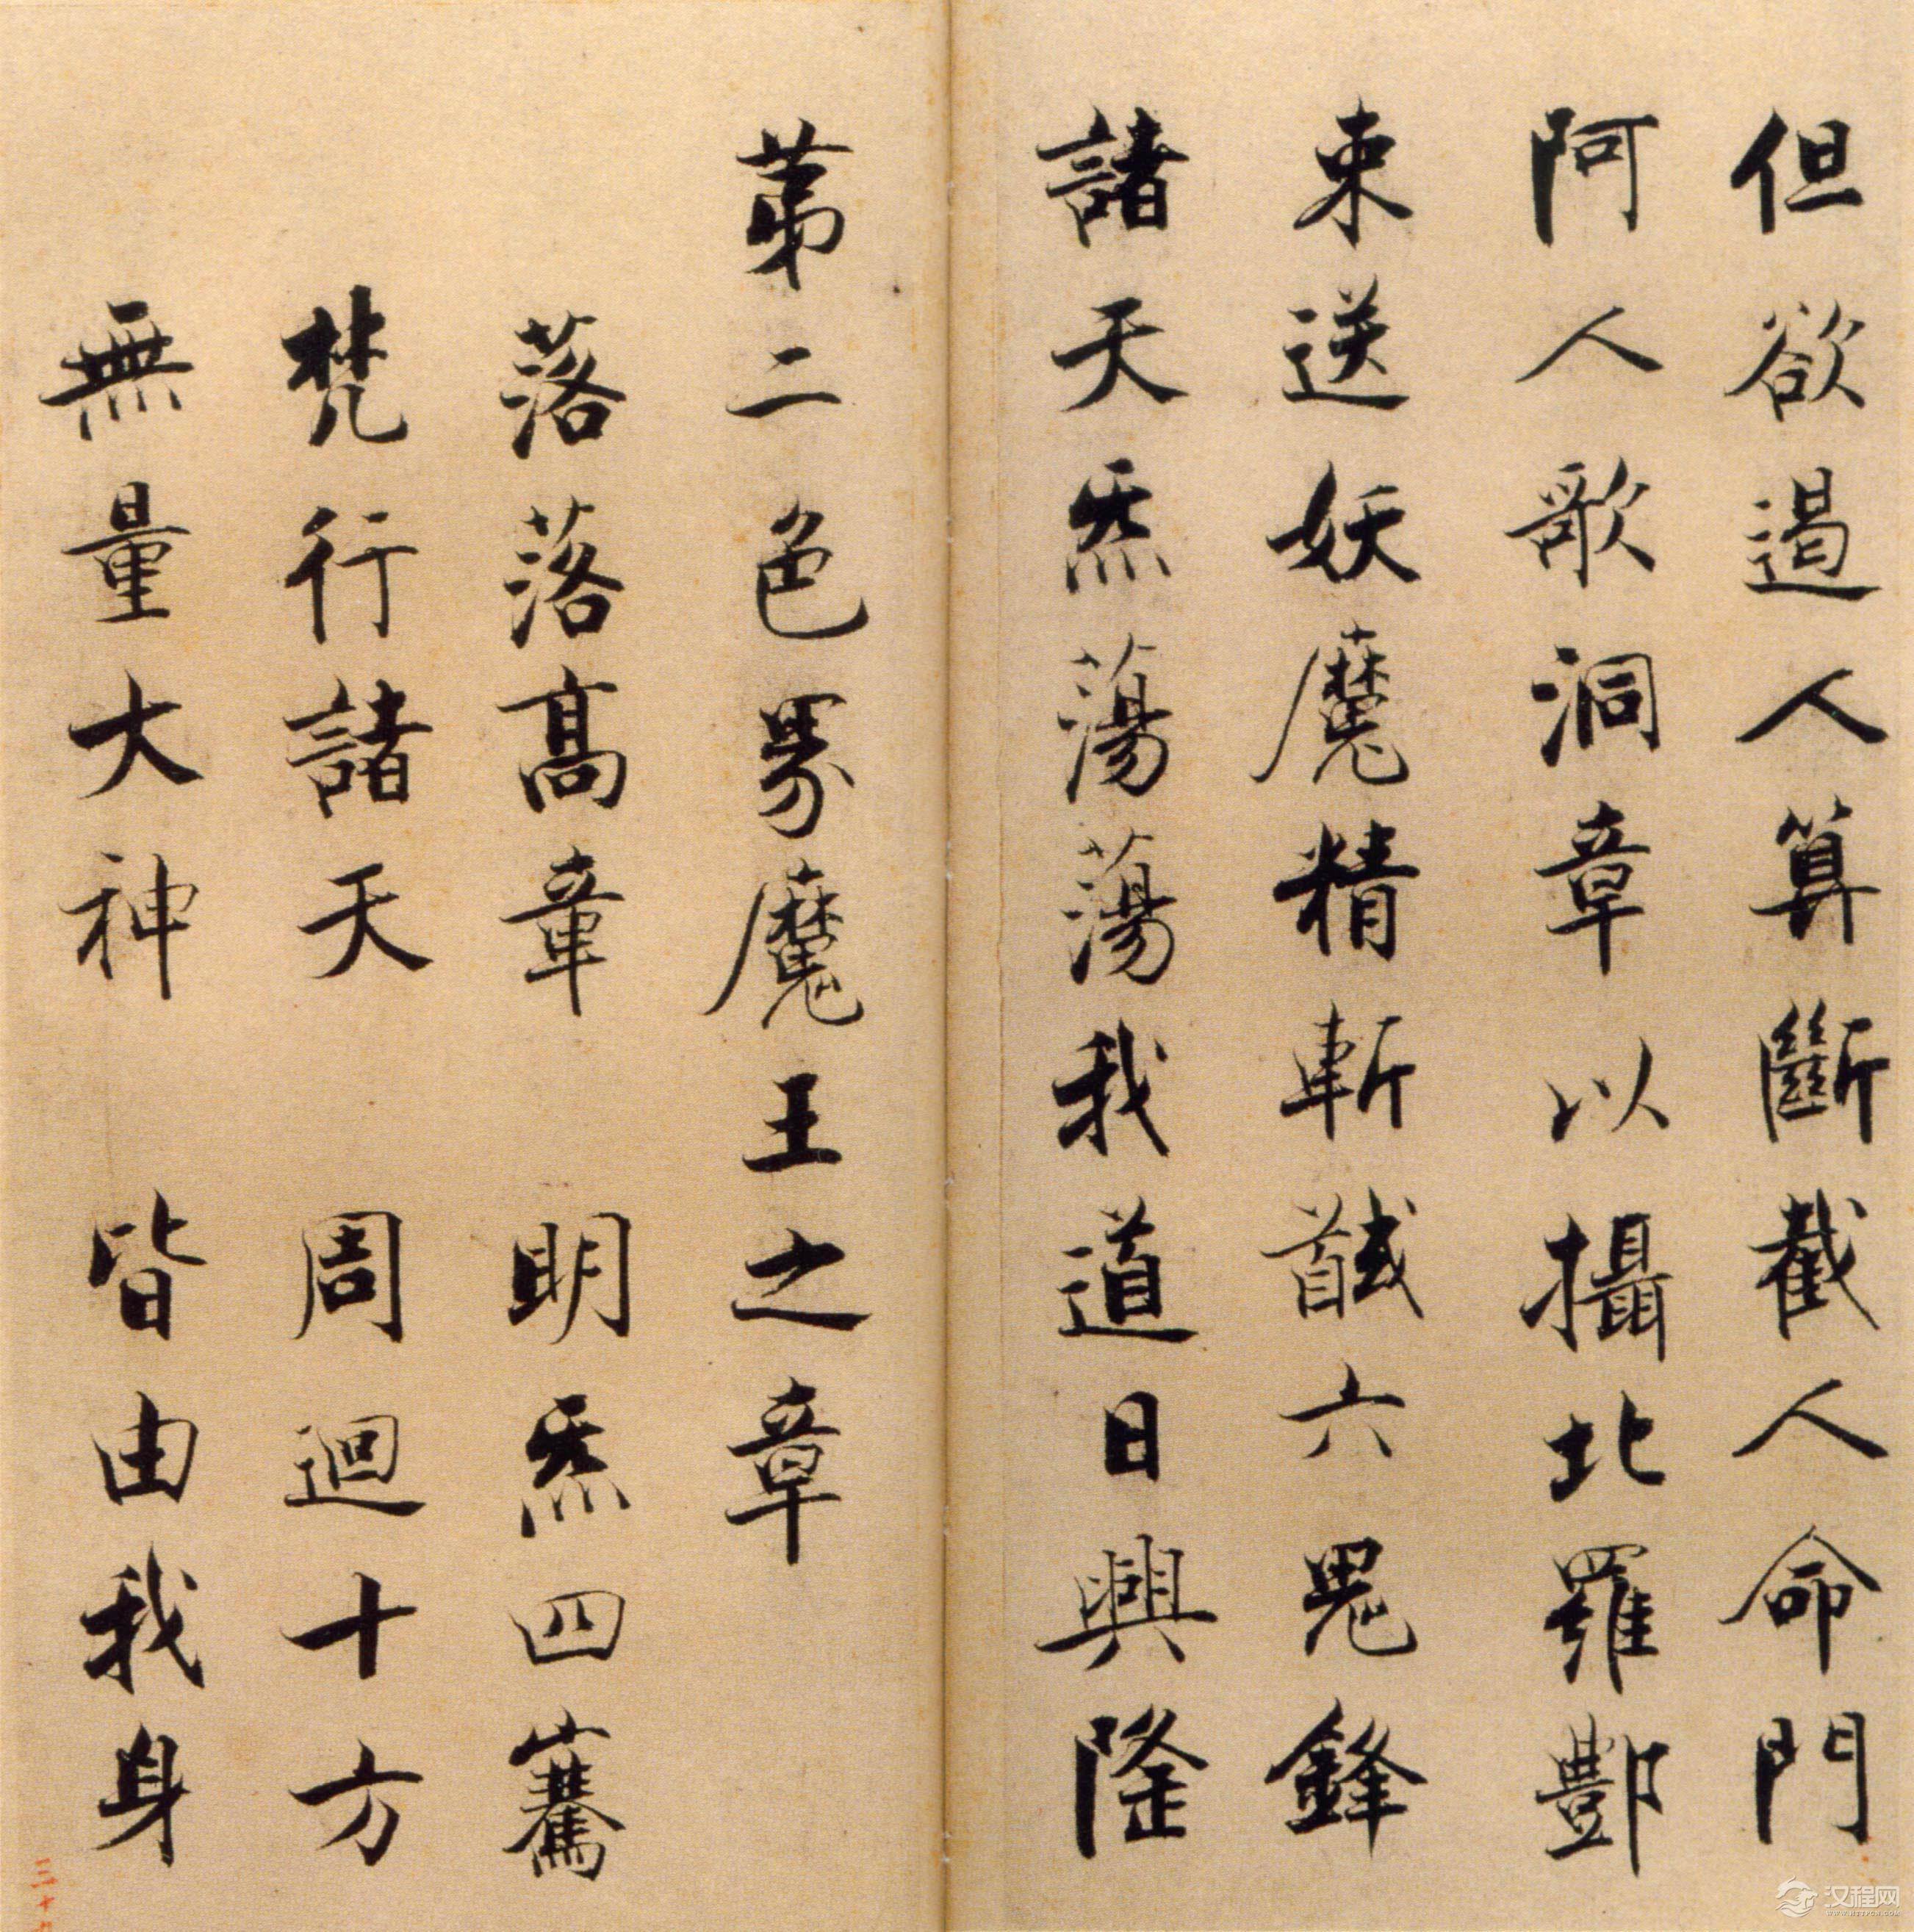 但欲遏人算斷截人命門
阿人歌洞章以攝北羅酆
束送妖魔精斬馘六鬼鋒
諸天炁蕩蕩我道日興隆
苐二色界魔王之章
落落高章　明炁四騫
梵行諸天　周迴十方
無量大神　皆由我身
三十
汉程网
WWW.HTTPCN.COM